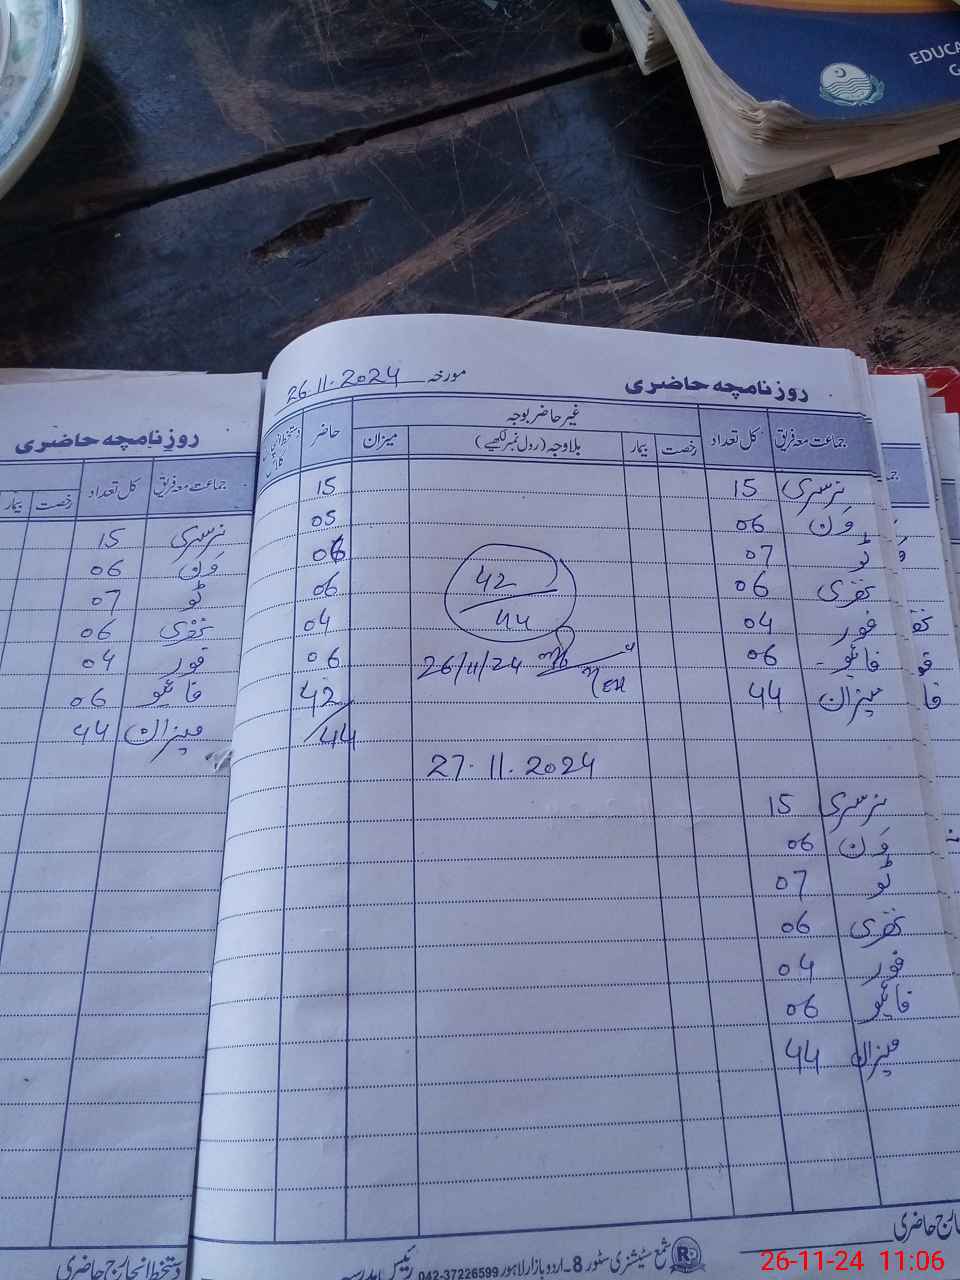 EDUCA
G
روزنامچہ حاضری
مورخہ 26.11.2024
جماعت معہ فریق کل تعداد غیر حاضر بوجہ حاضر
رخصت بیمار بلاوجہ (رول نمبر لکھیے) میزان
نرسری 15 15
وَن 06 05
ٹو 07 06
تھری 06 06
فور 04 04
فائیو 06 06
میزان 44 42/44
42/44
26/11/24
27.11.2024
نرسری 15
وَن 06
ٹو 07
تھری 06
فور 04
فائیو 06
میزان 44
شمع سٹیشنری سٹور 8-اردو بازار لاہور 042-37226599
روزنامچہ حاضری
جماعت معہ فریق کل تعداد رخصت بیمار
نرسری 15
وَن 06
ٹو 07
تھری 06
فور 04
فائیو 06
میزان 44
دستخط انچارج حاضری
26-11-24 11:06